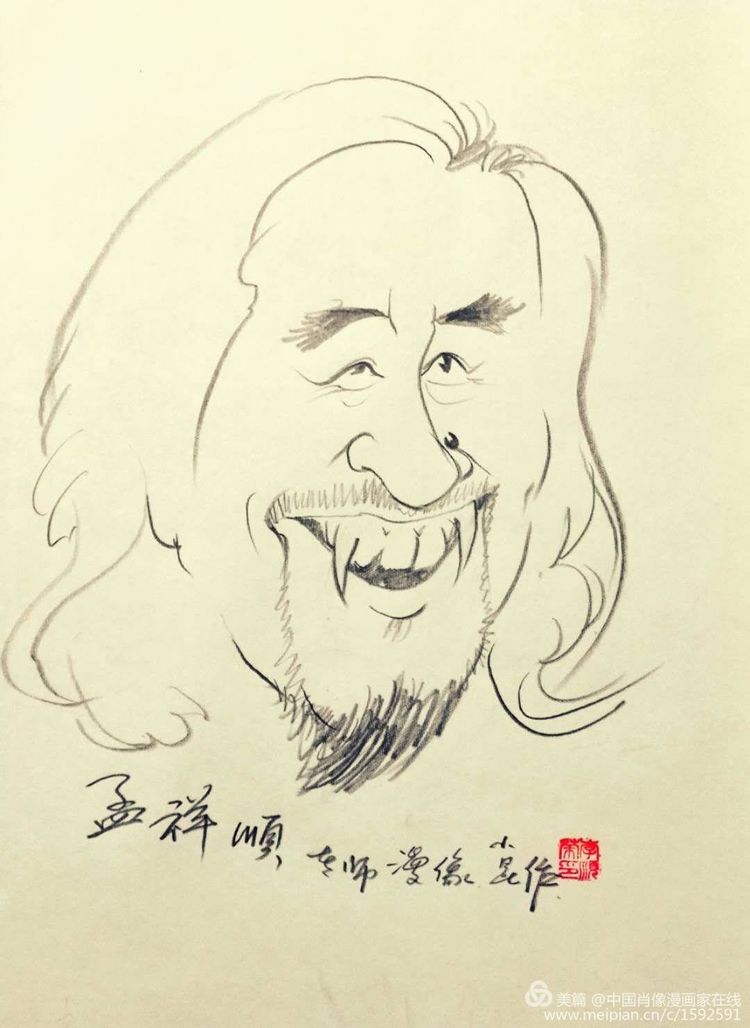 孟祥順老师漫像 小昆作
美篇 @中国肖像漫画家在线
www.meipian.cn/c/1592591